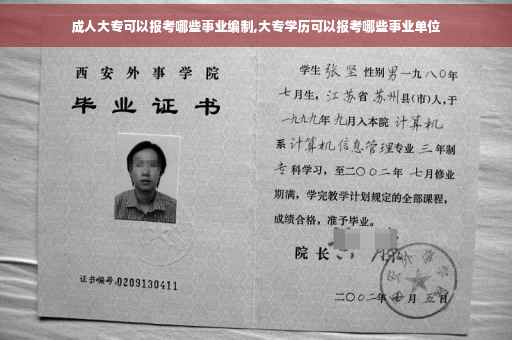 成人大专可以报考哪些事业编制,大专学历可以报考哪些事业单位
西安外事学院
毕业证书
证书编号:0209130411
学生 张坚 性别 男 一九八〇年
七月生，江苏省 苏州县(市)人,于
一九九九年 九月入本院 计算机
系 计算机信息管理专业 三 年制
专 科学习，至二〇〇二年 七月修业
期满，学完教学计划规定的全部课程，
成绩合格，准予毕业。
院长
二〇〇二年 月 五日